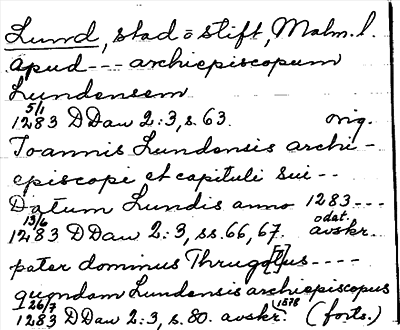 Lund, stad o stift, Malm. l.
apud --- archiepiscopum
Lundensem
5/1
1283 DDan 2:3, s. 63. orig.
Joannis Lundensis archi-
episcopi et capituli sui --
Datum Lundis anno 1283 ---
13/6 odat.
1283 DDan 2:3, ss. 66, 67. avskr.
pater dominus Thrugot[?]us ----
quondam Lundensis archiepiscopus
26/7 1578
1283 DDan 2:3, s. 80. avskr. (forts.)